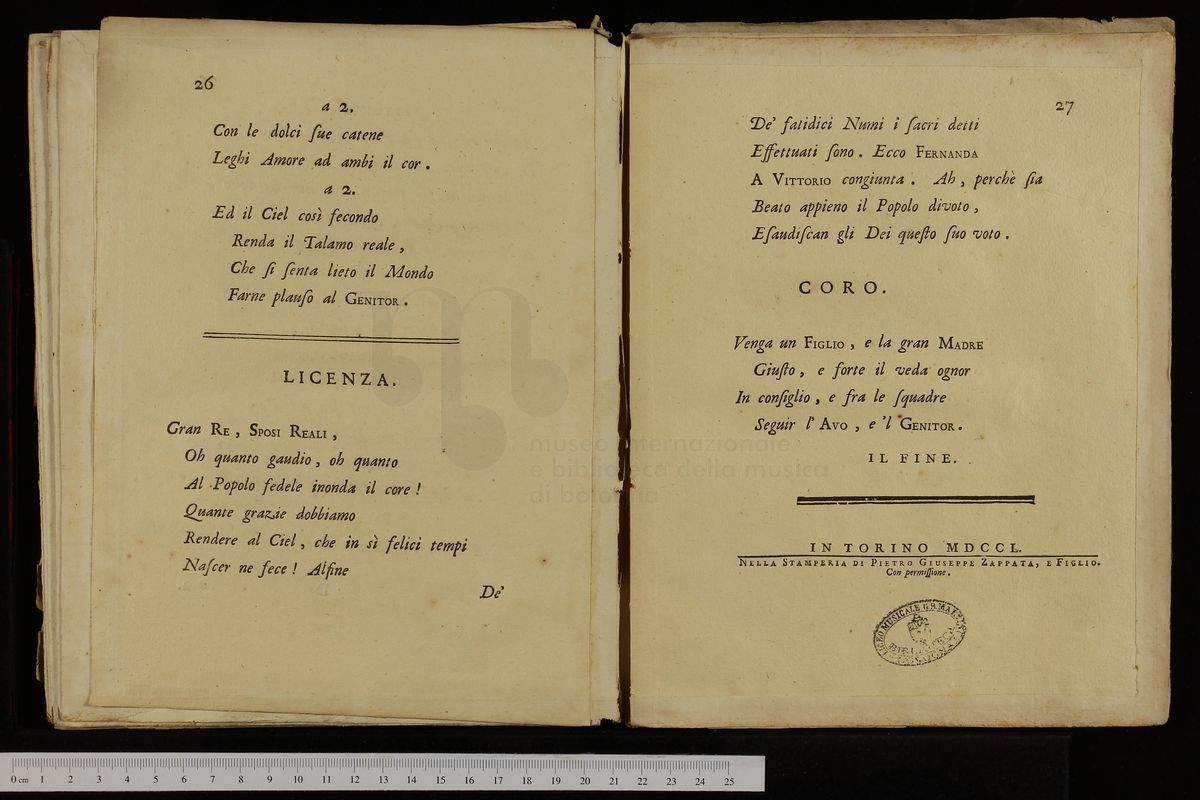 26
a 2.
Con le dolci ſue catene
Leghi Amore ad ambi il cor.
a 2.
Ed il Ciel così fecondo
Renda il Talamo reale,
Che ſi ſenta lieto il Mondo
Farne plauſo al GENITOR.
LICENZA.
Gran RE, SPOSI REALI,
Oh quanto gaudio, oh quanto
Al Popolo fedele inonda il core!
Quante grazie dobbiamo
Rendere al Ciel, che in sì felici tempi
Naſcer ne fece! Alfine
De'
27
De' fatidici Numi i ſacri detti
Effettuati ſono. Ecco FERNANDA
A VITTORIO congiunta. Ah, perchè ſia
Beato appieno il Popolo divoto,
Eſaudiſcan gli Dei queſto ſuo voto.
CORO.
Venga un FIGLIO, e la gran MADRE
Giuſto, e forte il veda ognor
In conſiglio, e fra le ſquadre
Seguir l'AVO, e 'l GENITOR.
IL FINE.
IN TORINO MDCCL.
NELLA STAMPERIA DI PIETRO GIUSEPPE ZAPPATA, E FIGLIO.
Con permiſſione.
LICEO MUSICALE G.B. MAR
BIBLIOTECA
museo internazionale
e biblioteca della musica
di bologna
0 cm 1 2 3 4 5 6 7 8 9 10 11 12 13 14 15 16 17 18 19 20 21 22 23 24 25